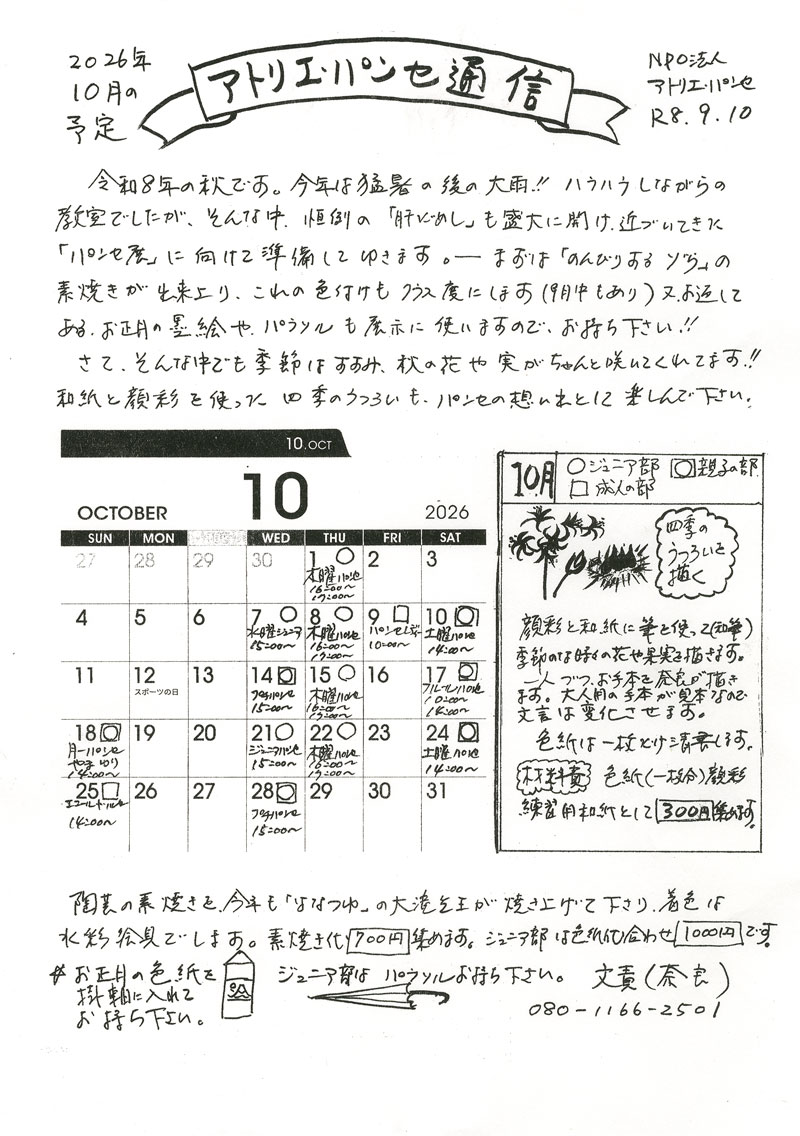 2026年
10月の
予定
アトリエ・パンセ通信
NPO法人
アトリエ・パンセ
R8.9.10
令和8年の秋です。今年は猛暑の後の大雨!! ハラハラしながらの
教室でしたが、そんな中、恒例の「肝だめし」も盛大に開け、近づいてきた
「パンセ展」に向けて準備してゆきます。― まずは「のんびりするゾウ」の
素焼きが出来上り、これの色付けもクラス度にします(9月中もあり)又、お返しして
ある、お正月の墨絵や、パラソルも展示に使いますので、お持ち下さい!!
さて、そんな中でも季節はすすみ、秋の花や実がちゃんと咲いてくれてます!!
和紙と顔彩を使った 四季のうつろいも、パンセの想い出として楽しんで下さい。
10.OCT
OCTOBER 10 2026
SUN MON WED THU FRI SAT
27 28 29 30 1 ○ 2 3
木曜パンセ
16:00〜
17:00〜
4 5 6 7 ○ 8 ○ 9 □ 10
水曜ジュニア 木曜パンセ パンセレディ 土曜パンセ
15:00〜 16:00〜 10:00〜 14:00〜
17:00〜
11 12 13 14 15 ○ 16 17
スポーツの日 プチパンセ 木曜パンセ ブルーパンセ
15:00〜 16:00〜 10:00〜
17:00〜 14:00〜
18 19 20 21 ○ 22 ○ 23 24
月一パンセ ジュニアパンセ 木曜パンセ 土曜パンセ
やまゆり 15:00〜 16:00〜 14:00〜
14:00〜 17:00〜
25 □ 26 27 28 29 30 31
エコールド プチパンセ
14:00〜 15:00〜
10月 ○ジュニア部 親子の部
□成人の部
四季の
うつろいを
描く
顔彩と和紙に筆を使って(和筆)
季節の様々の花や果実を描きます。
一人づつ、お手本を奈良が描き
ます。大人用の手本が見本なので
文言は変化させます。
色紙は一枚だけ清書します。
材料費 色紙(一枚分)顔彩
練習用和紙として 300円 集めます。
陶芸の素焼きを、今年も「ななつゆ」の大滝先生が焼き上げて下さり、着色は
水彩絵具でします。素焼き代 700円 集めます。ジュニア部は色紙代合わせ 1000円 です。
*お正月の色紙を
掛軸に入れて
お持ち下さい。
ジュニア部は パラソルお持ち下さい。 文責(奈良)
080-1166-2501